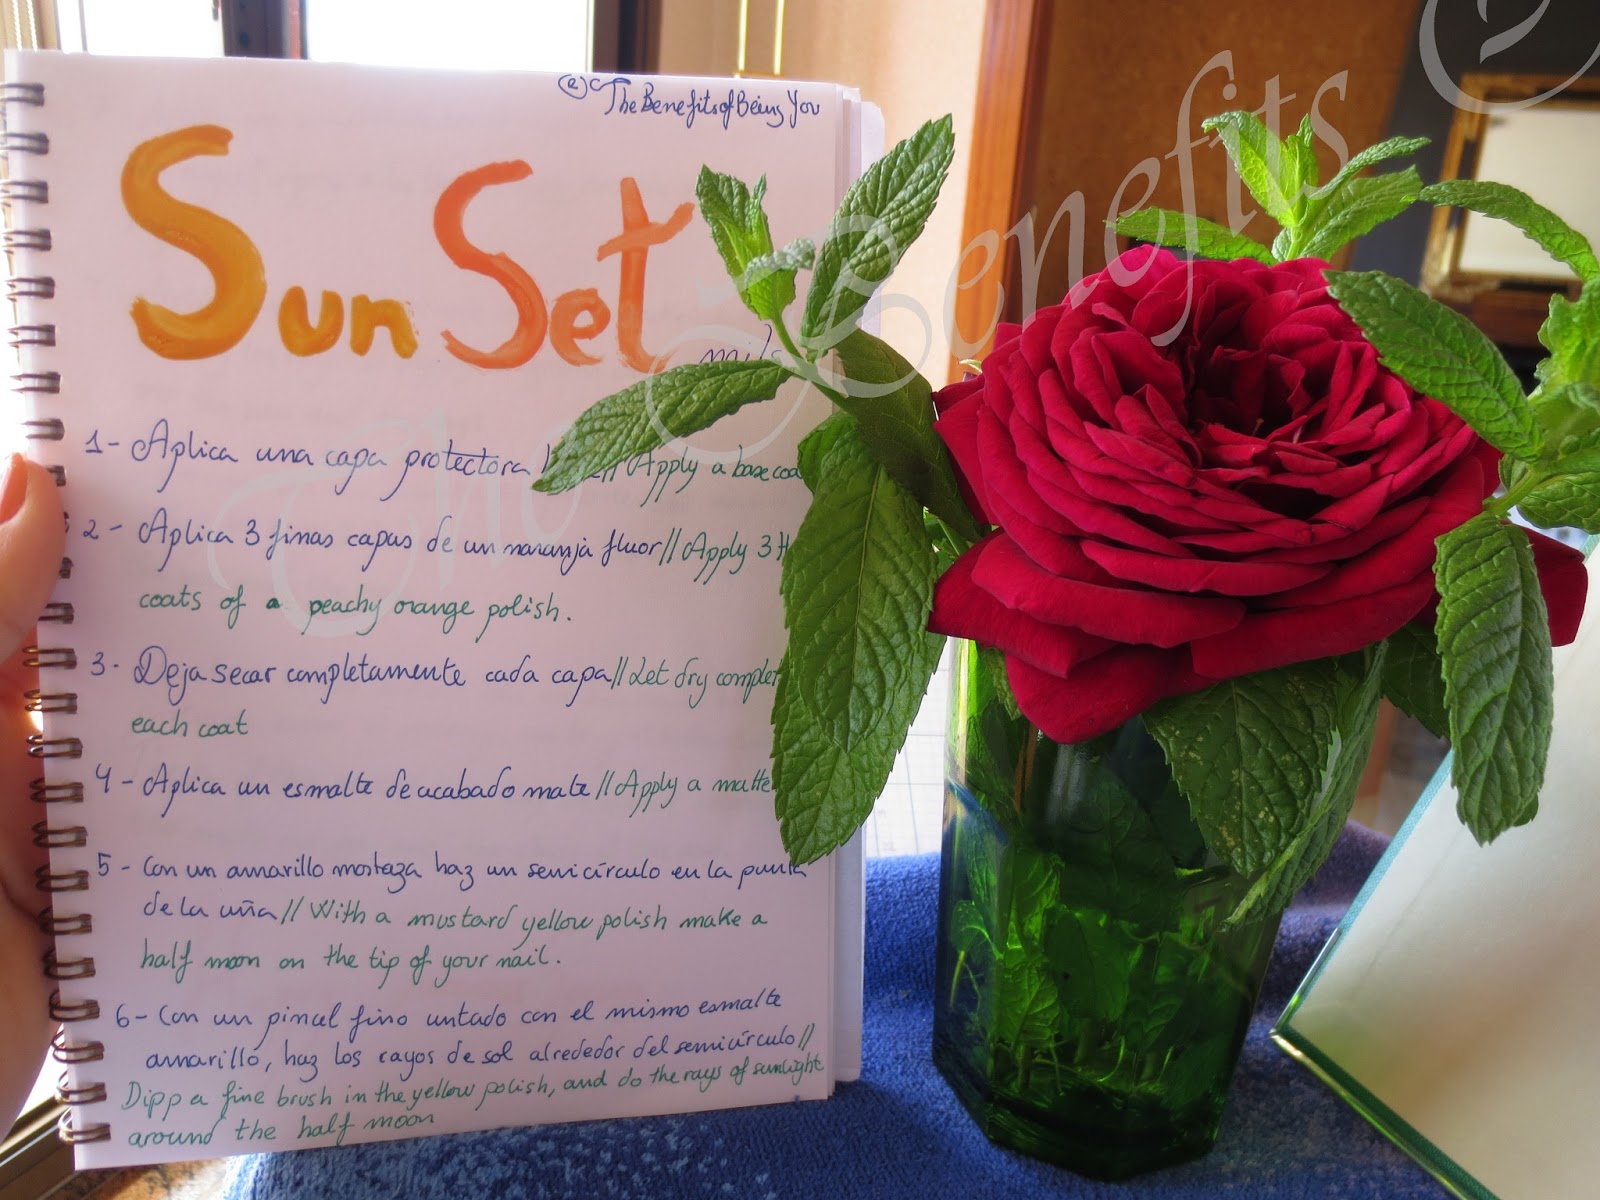 (e)c TheBenefitsofBeing You
Sun Set
nails
1- Aplica una capa protectora // Apply a base coa
2- Aplica 3 finas capas de un naranja fluor // Apply 3
coats of a peachy orange polish.
3- Deja secar completamente cada capa // Let dry complet
each coat
4- Aplica un esmalte de acabado mate // Apply a matte
5- Con un amarillo mostaza haz un semicírculo en la punta
de la uña // With a mustard yellow polish make a
half moon on the tip of your nail.
6- Con un pincel fino untado con el mismo esmalte
amarillo, haz los rayos de sol alrededor del semicírculo //
Dipp a fine brush in the yellow polish, and do the rays of sunlight
around the half moon
The Benefits